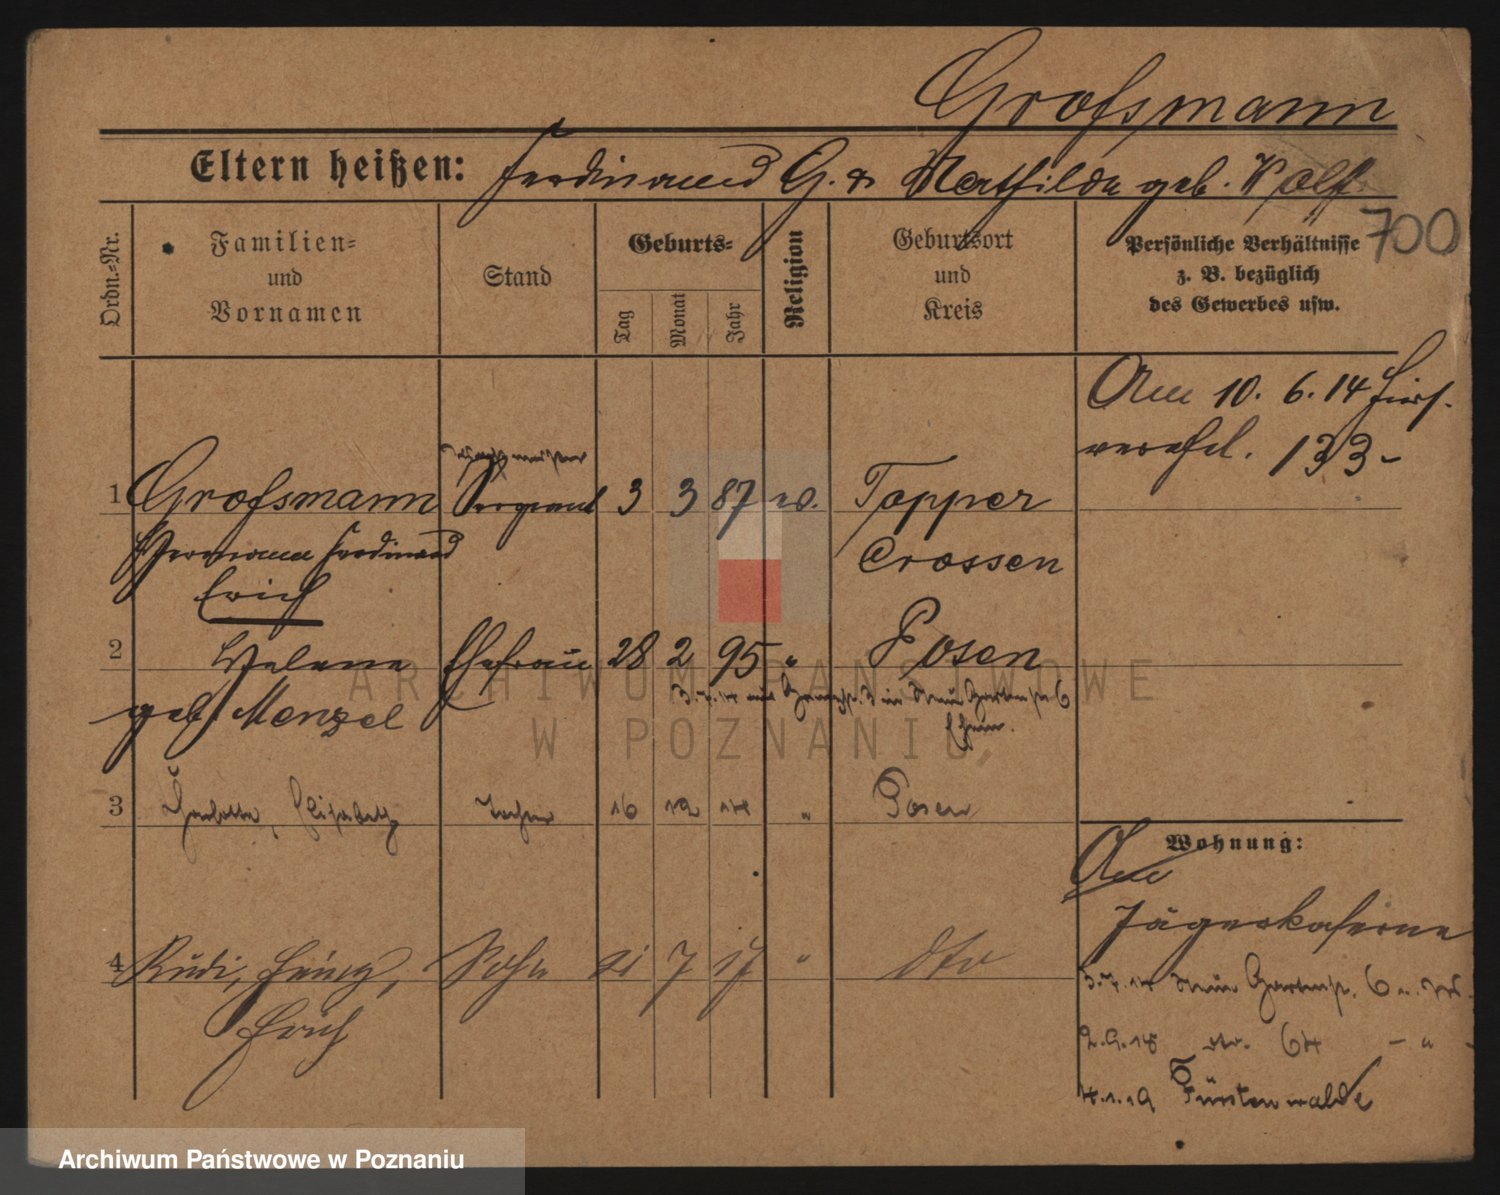 Großmann
Eltern heißen: Ferdinand G. & Mathilde geb. Wolff
700
Ordn.-Nr.
Familien-
und
Vornamen
Stand
Geburts-
Tag
Monat
Jahr
Religion
Geburtsort
und
Kreis
Persönliche Verhältnisse
z. B. bezüglich
des Gewerbes usw.
Am 10. 6. 14 hier
verehel. 133-
1 Großmann Sergeant 3 3 87 ev. Topper
Hermann Ferdinand Crossen
Erich
2 Helene Ehefrau 28 2 95 " Posen
geb. Menzel
3 Charlotte, Elisabeth Tochter 16 12 14 " Posen
4 Rudi, Heinz, Sohn 21 7 17 " dto
Erich
Wohnung:
Jägerkaserne
3.7.14 Neue Gartenstr. 6
2.9.18 64 - " -
4.1.19 Fürstenwalde
ARCHIWUM PAŃSTWOWE
W POZNANIU
Archiwum Państwowe w Poznaniu